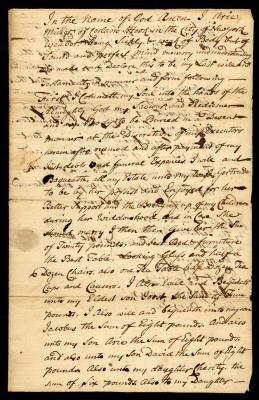 In the Name of God Amen I Arie
of Corlaers Hook in the City of New york
being of Body but of
Sound and perfect mind memory and understanding
Do make and declare this to be my Last will and
Testament in manner and form following
First I Committ my Soul into the hands of the
God my Saviour and Redeemer
and my Body to be Buried in a Decent
manner at the Discretion of my Executors
herein after named and after payment of my
Just debts and funeral Expences I will and
Bequeath all my Estate unto my wife Gertrude
to be by her possest and Enjoyed for her
Better Support and the Bringing up of my Children
during her Widdowhood and in Case She
Should marry I then then Give her the Sum
of Twenty pounds and Best Bed & furniture
the Best Table Looking Glass and half a
Dozen Chairs also one Tea Table half Dozen Tea
Cups and Saucers. I Also will and Bequeath
unto my Eldest Son the Sum of
pounds. I also will and bequeath unto my son
Jacobus the Sum of Eight pounds And also
unto my Son Arie the Sum of Eight pounds
and also unto my Son David the Sum of Eight
pounds Also unto my daughter the
Sum of Six pounds Also to my Daughter